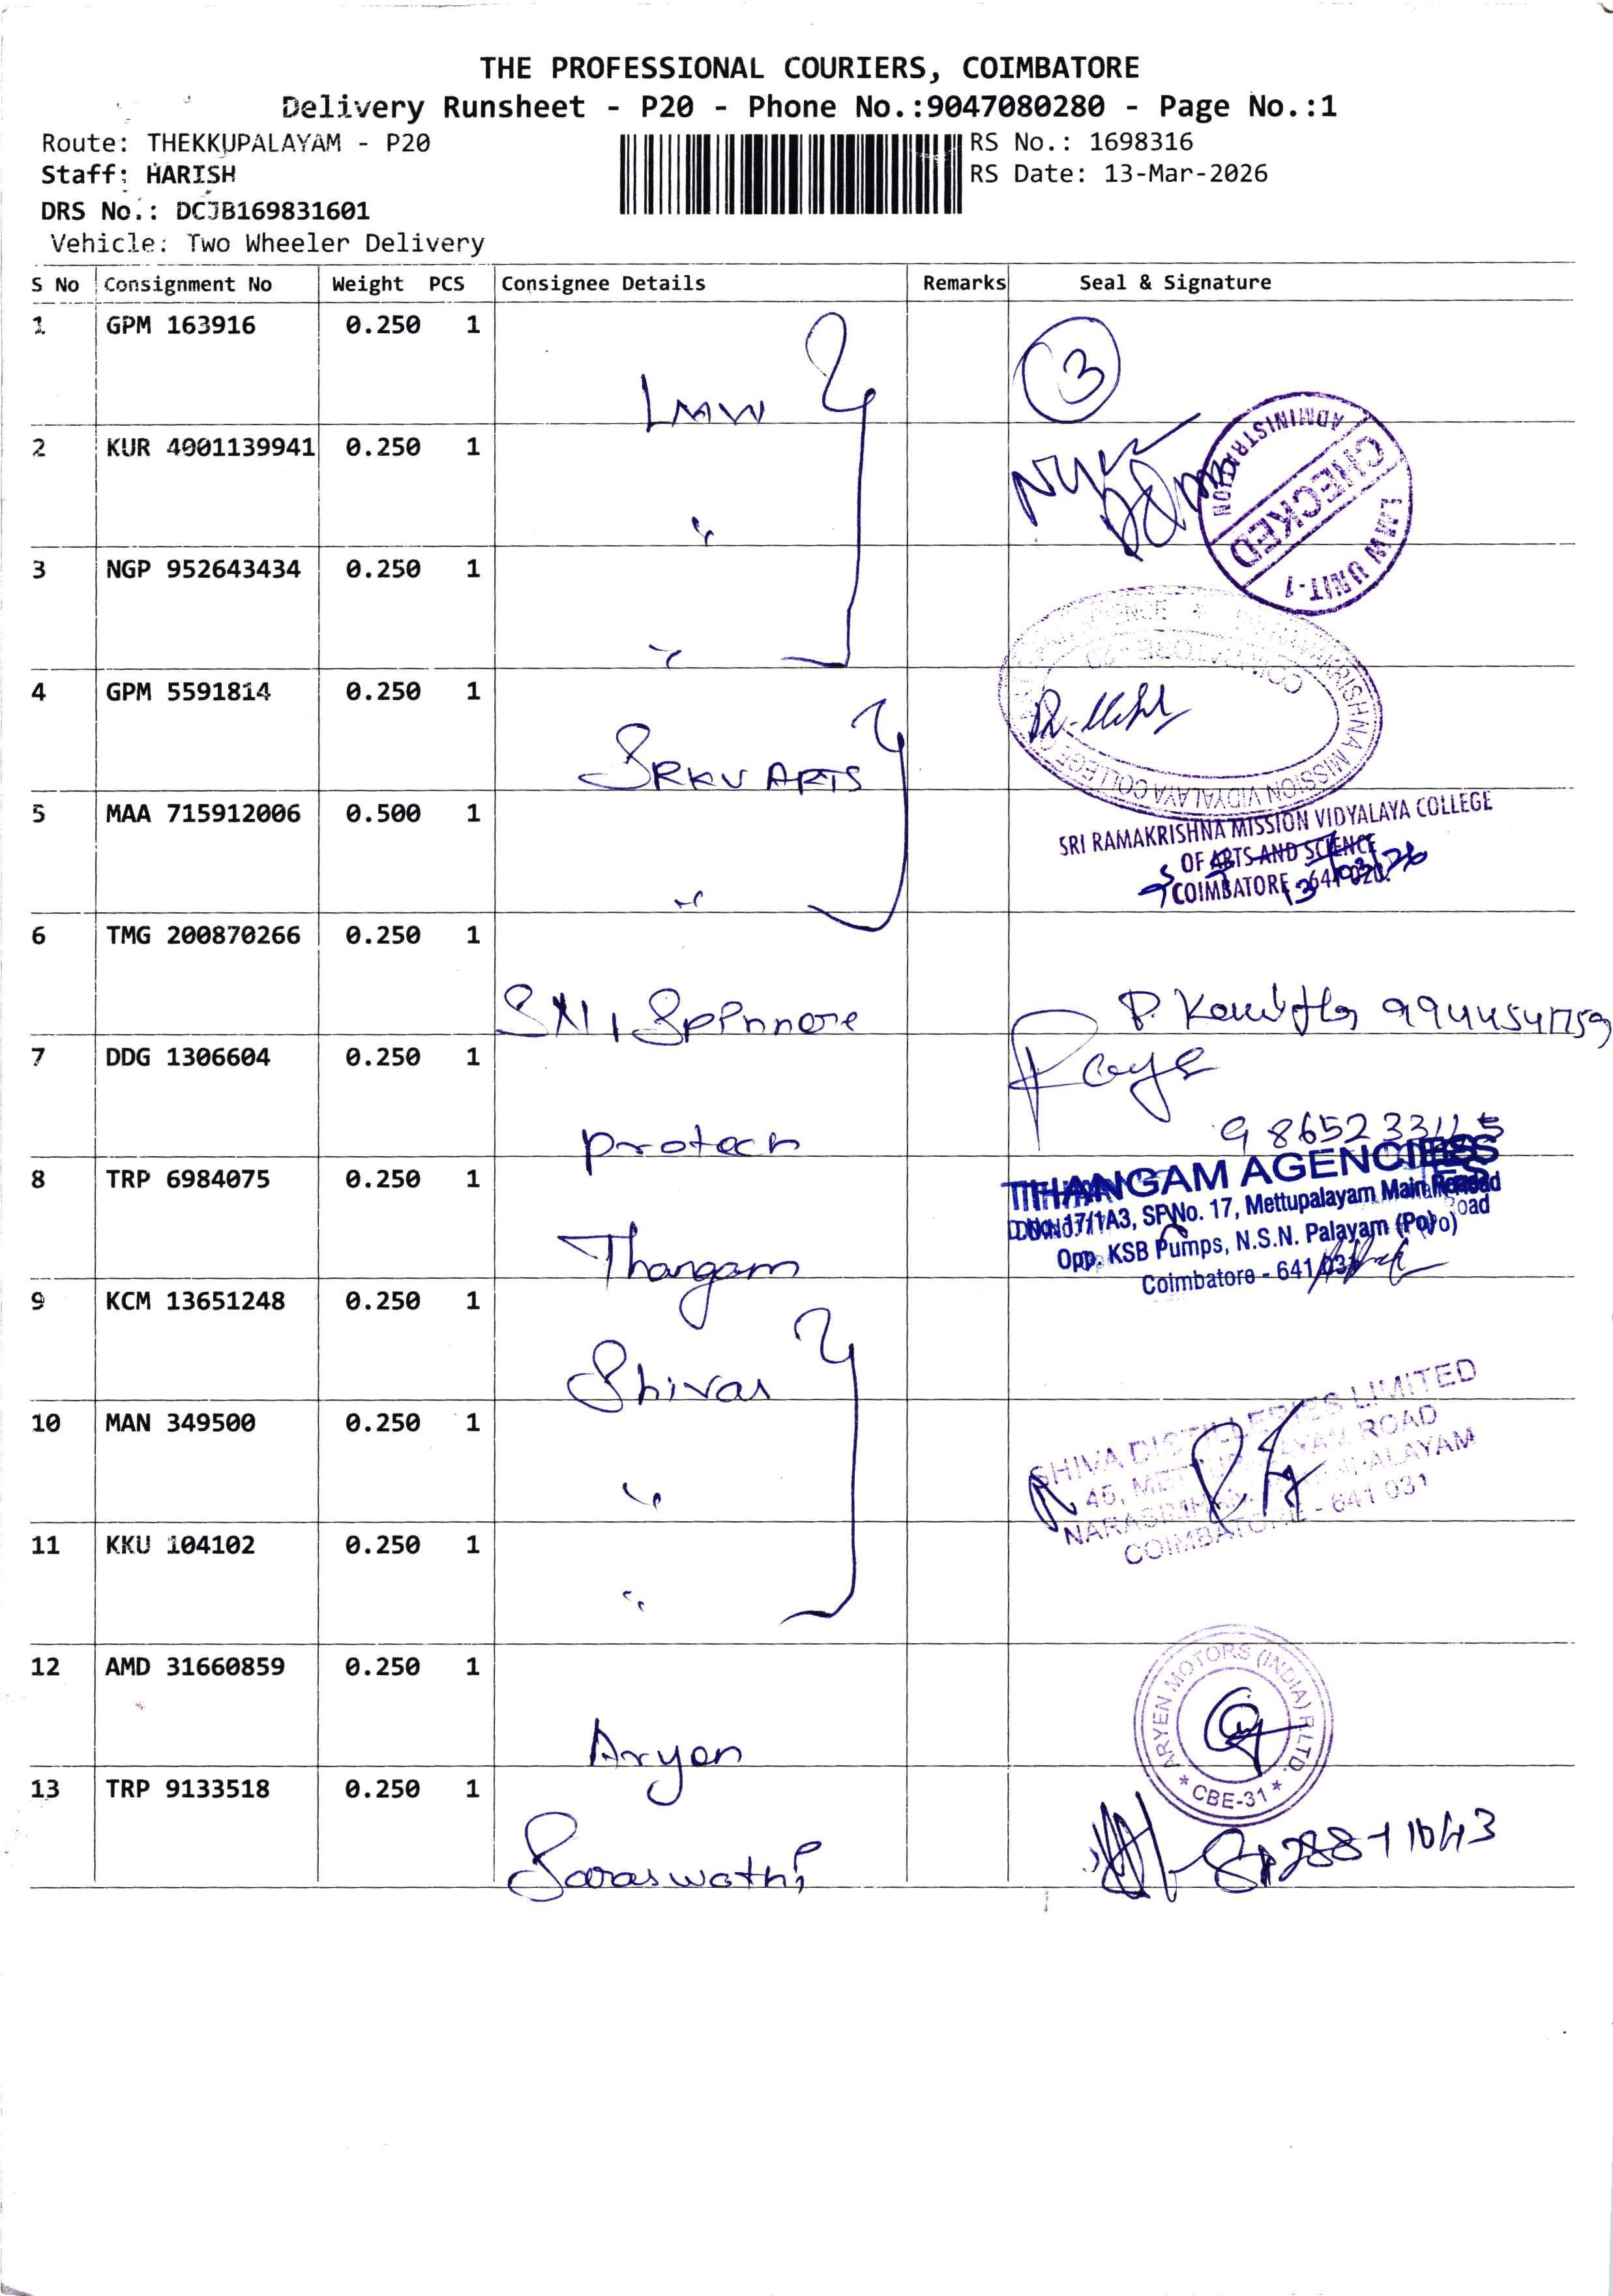 THE PROFESSIONAL COURIERS, COIMBATORE
Delivery Runsheet - P20 - Phone No.:9047080280 - Page No.:1
Route: THEKKUPALAYAM - P20
RS No.: 1698316
Staff: HARISH
RS Date: 13-Mar-2026
DRS No.: DCJB169831601
Vehicle: Two Wheeler Delivery
S No Consignment No Weight PCS Consignee Details Remarks Seal & Signature
1 GPM 163916 0.250 1
LMW
3
2 KUR 4001139941 0.250 1
"
ADMINISTRATION
CHECKED
LMW UNIT-1
3 NGP 952643434 0.250 1
"
4 GPM 5591814 0.250 1
SRKV ARTS
RAMAKRISHNA MISSION VIDYALAYA COLLEGE
COIMBATORE - 20
5 MAA 715912006 0.500 1
"
SRI RAMAKRISHNA MISSION VIDYALAYA COLLEGE
OF ARTS AND SCIENCE
COIMBATORE - 641 020.
13/03/26
6 TMG 200870266 0.250 1
P. Kavitha
7 DDG 1306604 0.250 1
protech
8 TRP 6984075 0.250 1
Thangam
THANGAM AGENCIES
D.No. 17/1A3, SF.No. 17, Mettupalayam Main Road
Opp. KSB Pumps, N.S.N. Palayam (Po)
Coimbatore - 641 031
9 KCM 13651248 0.250 1
Shivas
10 MAN 349500 0.250 1
"
SHIVA DISTILLERIES LIMITED
45, METTUPALAYAM ROAD
COIMBATORE - 641 031
11 KKU 104102 0.250 1
"
12 AMD 31660859 0.250 1
Aryen
ARYEN MOTORS (INDIA) P.LTD.
* CBE-31 *
13 TRP 9133518 0.250 1
Saraswathi